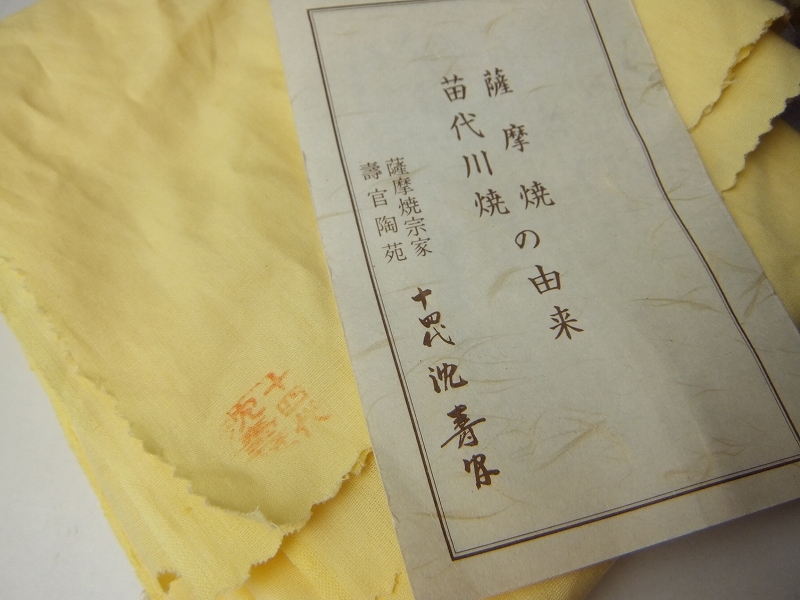 薩摩焼の由来
苗代川焼
薩摩焼宗家
壽官陶苑
十四代 沈壽官
十四代
沈壽官